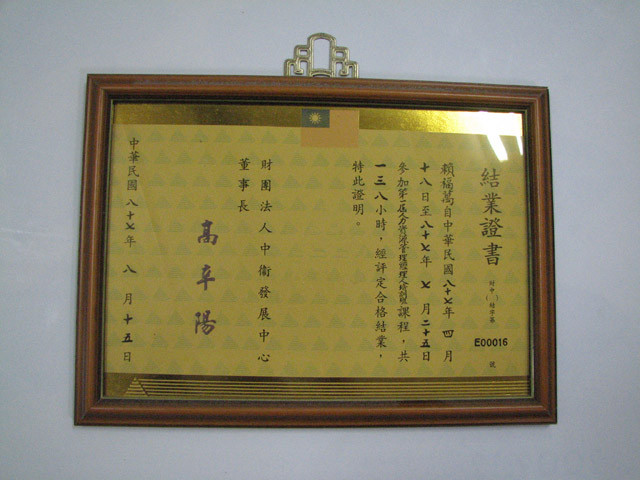 結業證書
財中（　）結字第
E00016
號
賴福萬自中華民國八十七年四月
十八日至八十七年七月二十五日
參加第一屆人力資源管理師人才培訓課程，共
一三八小時，經評定合格結業，
特此證明。
財團法人中衛發展中心
董事長
中華民國八十七年八月十五日